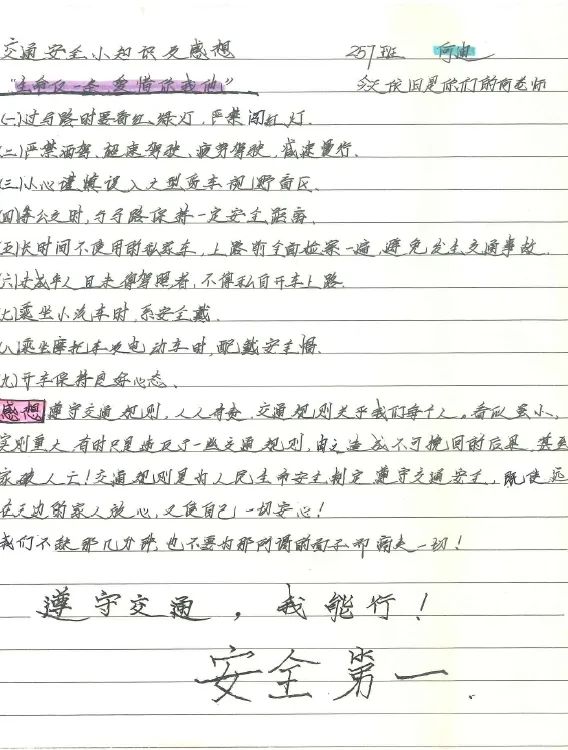 交通安全小知识及感想 257班 何迪
"生命仅一条,爱惜你我他" 今天依旧是你们的何老师
(一)过马路时要看红、绿灯,严禁闯红灯.
(二)严禁酒驾、超速驾驶、疲劳驾驶,减速慢行.
(三)小心谨慎误入大型货车视野盲区.
(四)等公交时,与马路保持一定安全距离.
(五)长时间不使用的私家车,上路前全面检察一遍,避免发生交通事故.
(六)未成年人且未得驾照者,不得私自开车上路.
(七)乘坐小汽车时,系安全戴.
(八)乘坐摩托车及电动车时,配戴安全帽.
(九)开车保持良好心态.
感想 遵守交通规则,人人有责,交通规则关乎我们每个人。看似虽小,
实则重大 有时只是违反了一些交通规则,由之造成不可挽回的后果,甚至
家破人亡!交通规则是为人民生命安全制定 遵守交通安全,既使远
在天边的家人放心,又使自己一切安心!
我们不缺那几分钟,也不要为那所谓的面子而痛失一切!
遵守交通,我能行!
安全第一.